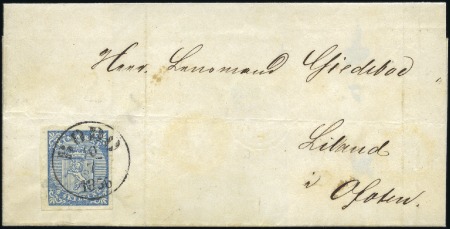 Herr Lensmand Giedeboe
Liland
i Ofoten.
BODØ
1856